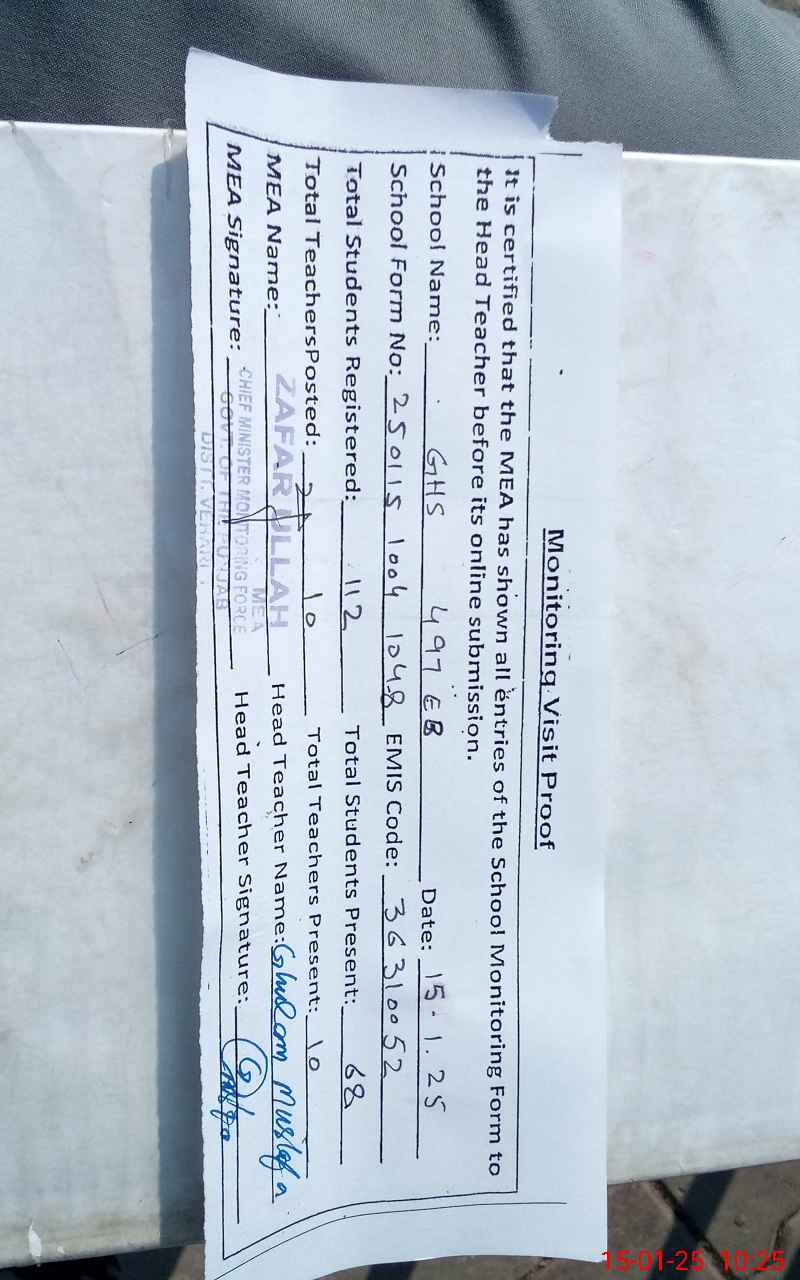 Monitoring Visit Proof
It is certified that the MEA has shown all entries of the School Monitoring Form to
the Head Teacher before its online submission.
School Name: GHS 497 EB Date: 15.1.25
School Form No: 250115 1004 1048 EMIS Code: 36310052
Total Students Registered: 112 Total Students Present: 68
Total TeachersPosted: 10 Total Teachers Present: 10
MEA Name: ZAFAR ULLAH Head Teacher Name: Ghulam Mustafa
MEA
MEA Signature: CHIEF MINISTER MONITORING FORCE Head Teacher Signature:
GOVT. OF THE PUNJAB
DISTT. VEHARI
15-01-25 10:25